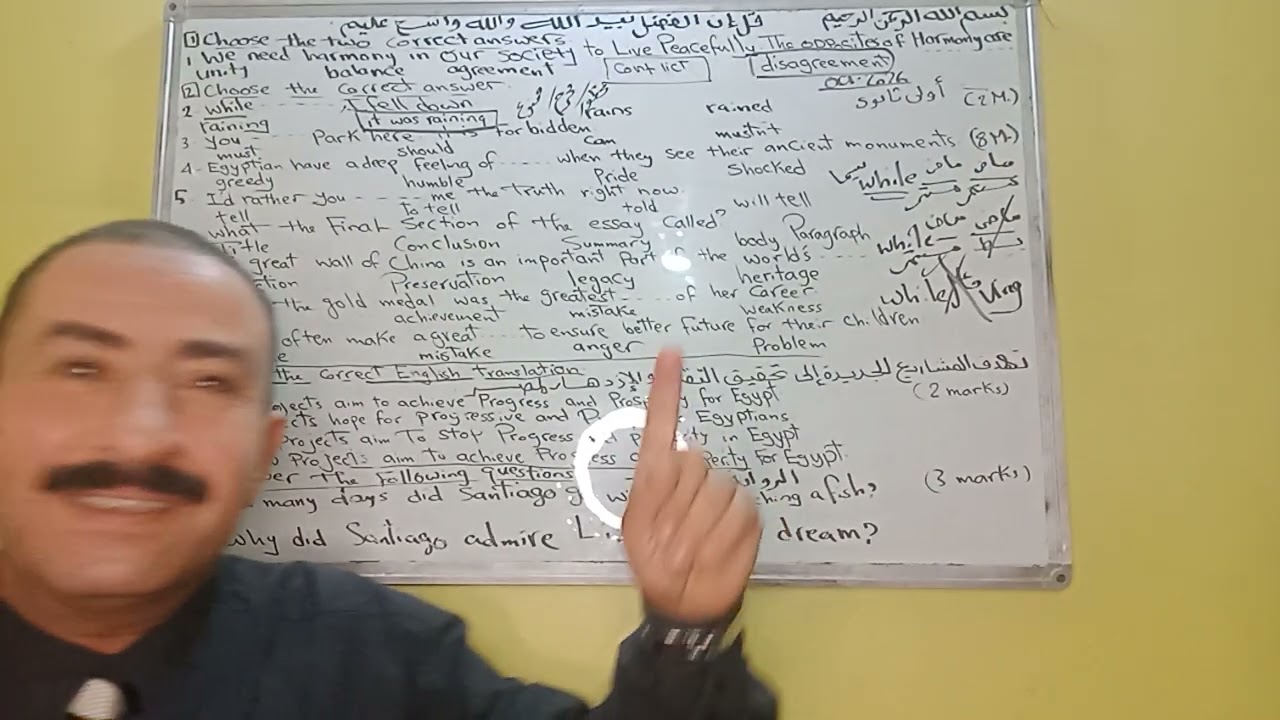 بسم الله الرحمن الرحيم قل إن الفضل بيد الله والله واسع عليم
1 Choose the two correct answers.
1. We need harmony in our society to Live Peacefully. The opposites of Harmony are
unity balance agreement conflict disagreement
2 Choose the correct answer. Oct. 2026 أولى ثانوى (2 M.)
2. While ...... , I fell down
raining it was raining rains rained
3. You ...... Park here. it is forbidden (8 M.)
must should can mustn't
4. Egyptian have a deep feeling of ...... when they see their ancient monuments
greedy humble Pride Shocked
5. I'd rather you ...... me the truth right now.
tell To tell told will tell
What the Final Section of the essay Called?
Title Conclusion Summary body Paragraph
great wall of China is an important Part of the world's ......
Preservation legacy heritage
the gold medal was the greatest ...... of her Career
achievement mistake weakness
often make a great ...... to ensure better future for their children
mistake anger Problem
the Correct English Translation.
تهدف المشاريع الجديدة إلى تحقيق (2 marks)
aim to achieve Progress and for Egypt
hope for Progressive and Egyptians
Projects aim To stop Progress in Egypt
Projects aim to achieve for Egypt.
the Following questions (3 marks)
many days did Santiago a fish?
Why did Santiago admire dream?
while ماض ماض
while
while ving